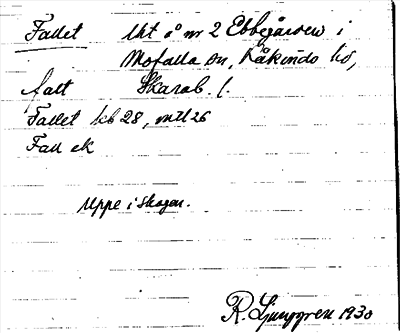 Fallet lht å nr 2 Ebbegården i
Mofalla sn, Kåkinds hd,
fallt Skarab. l.
Fallet kb 28, mtl 26
Fall ek
Uppe i skogen.
R. Ljunggren 1930